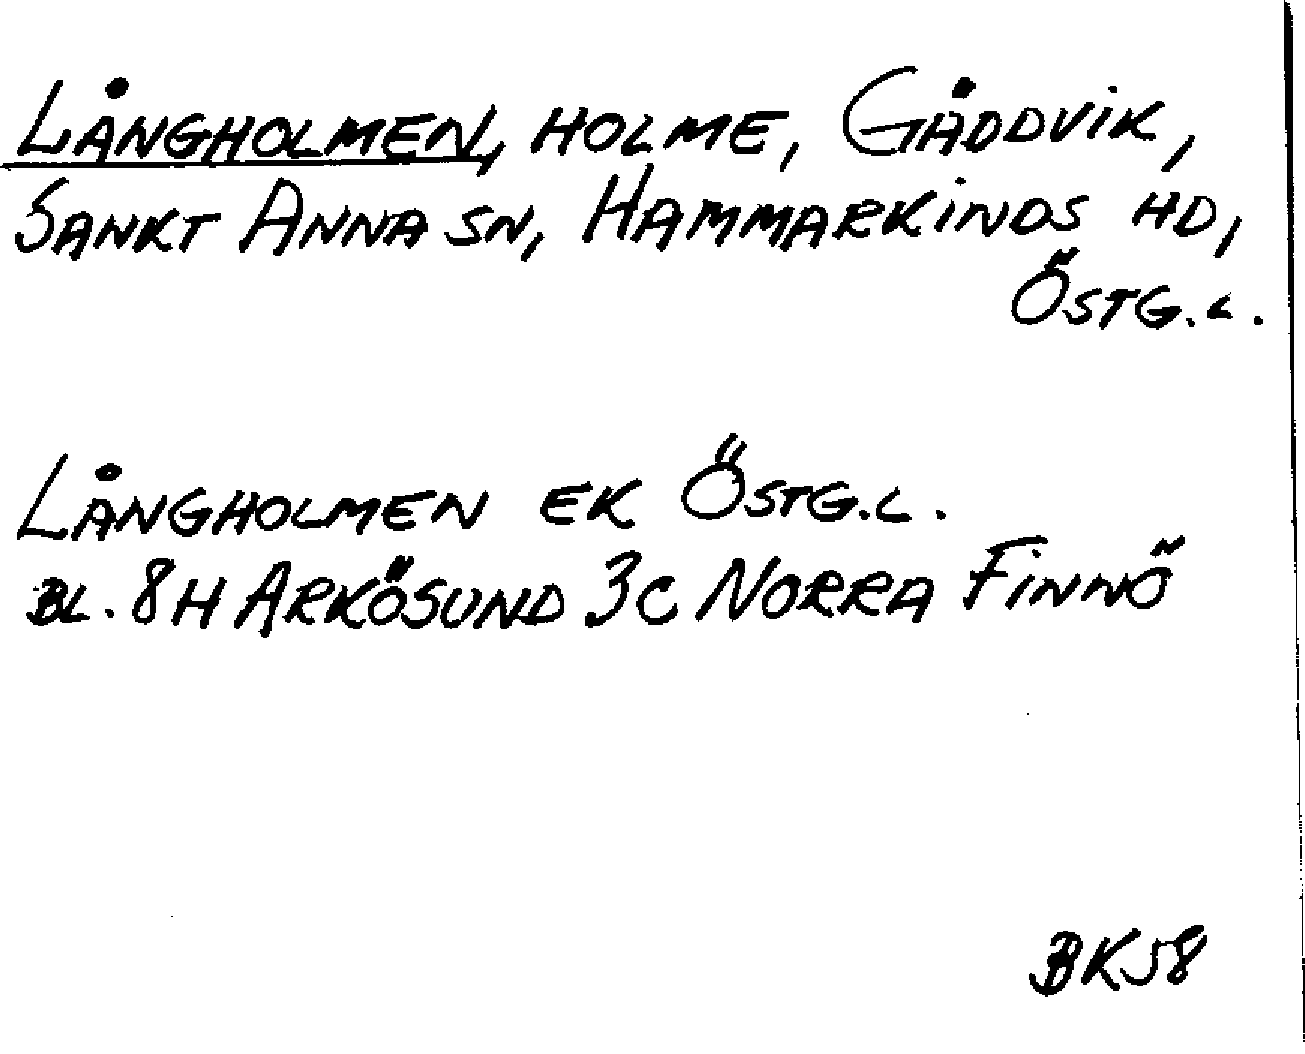 LÅNGHOLMEN, HOLME, GÅDDVIK,
SANKT ANNA SN, HAMMARKINDS HD,
ÖSTG.L.
LÅNGHOLMEN EK ÖSTG.L.
BL. 8H ARKÖSUND 3C NORRA FINNÖ
BK58